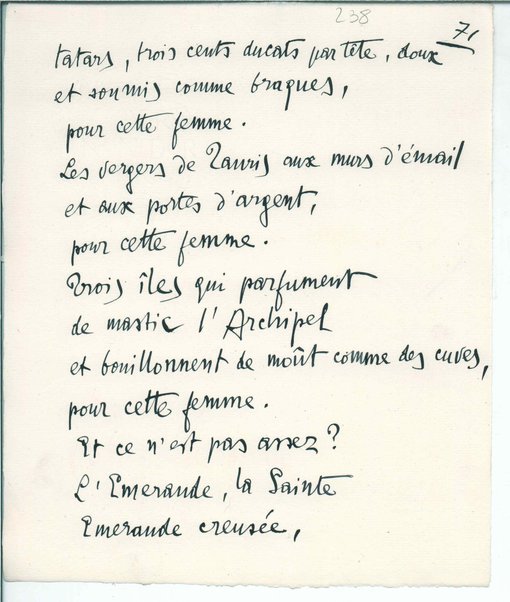 238
71
tatars, trois cents ducats par tête, doux
et soumis comme braques,
pour cette femme.
Les vergers de Tauris aux murs d'émail
et aux portes d'argent,
pour cette femme.
Trois îles qui parfument
de mastic l'Archipel
et bouillonnent de moût comme des cuves,
pour cette femme.
Et ce n'est pas assez?
L'Emeraude, la Sainte
Emeraude creusée,